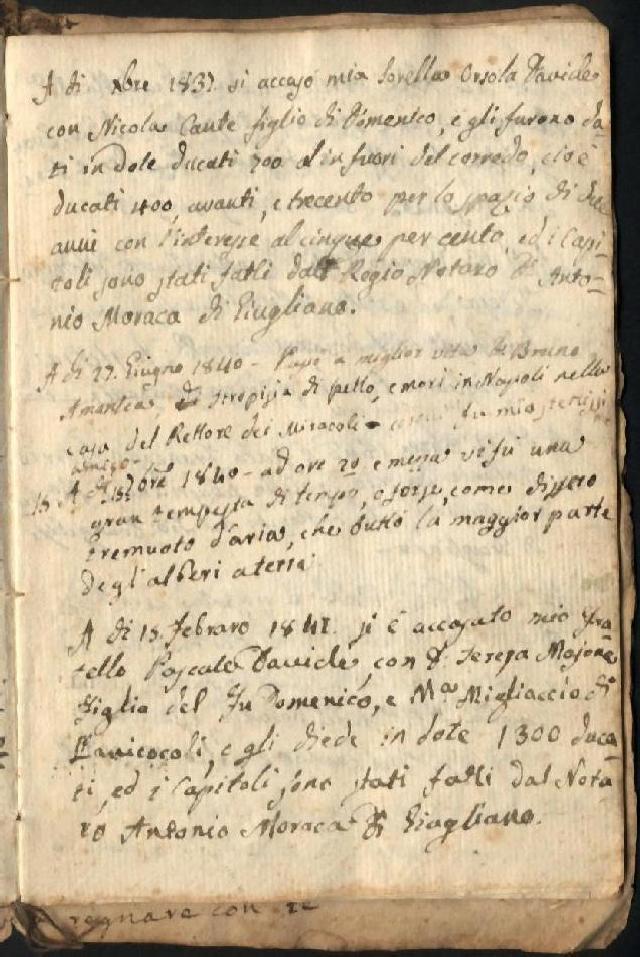 A dì Xbre 1837. si accasò mia sorella Orsola Davide
con Nicola Cante figlio di Domenico, e gli furono da-
ti in dote ducati 700 al in fuori del corredo, cioè
ducati 400, avanti, e trecento per lo spazio di due
anni con l'interesse al cinque per cento, ed i Capi-
toli sono stati fatti dal Regio Notaro D. Anto-
nio Moraca di Giugliano.
A dì 27. Giugno 1840 - Passò a miglior vita D. Bruno
Amantea, di itropisia di petto, e morì in Napoli nella
casa del Rettore dei Miracoli - fu mio
amico
A dì 15. 8bre 1840 - ad ore 20 e mezza vi fù una
gran tempesta di tempo, o forse, come dissero
tremuoto d'aria, che buttò la maggior parte
degl'alberi a terra
A dì 13. Febraro 1841. si è accasato mio Fra-
tello Pascale Davide, con D. Teresa Majone
Figlia del Fu Domenico, e M.a Migliaccio di
e gli diede in dote 1300 duca-
ti, ed i Capitoli sono stati fatti dal Nota-
ro Antonio Moraca di Giugliano.
regnare con te